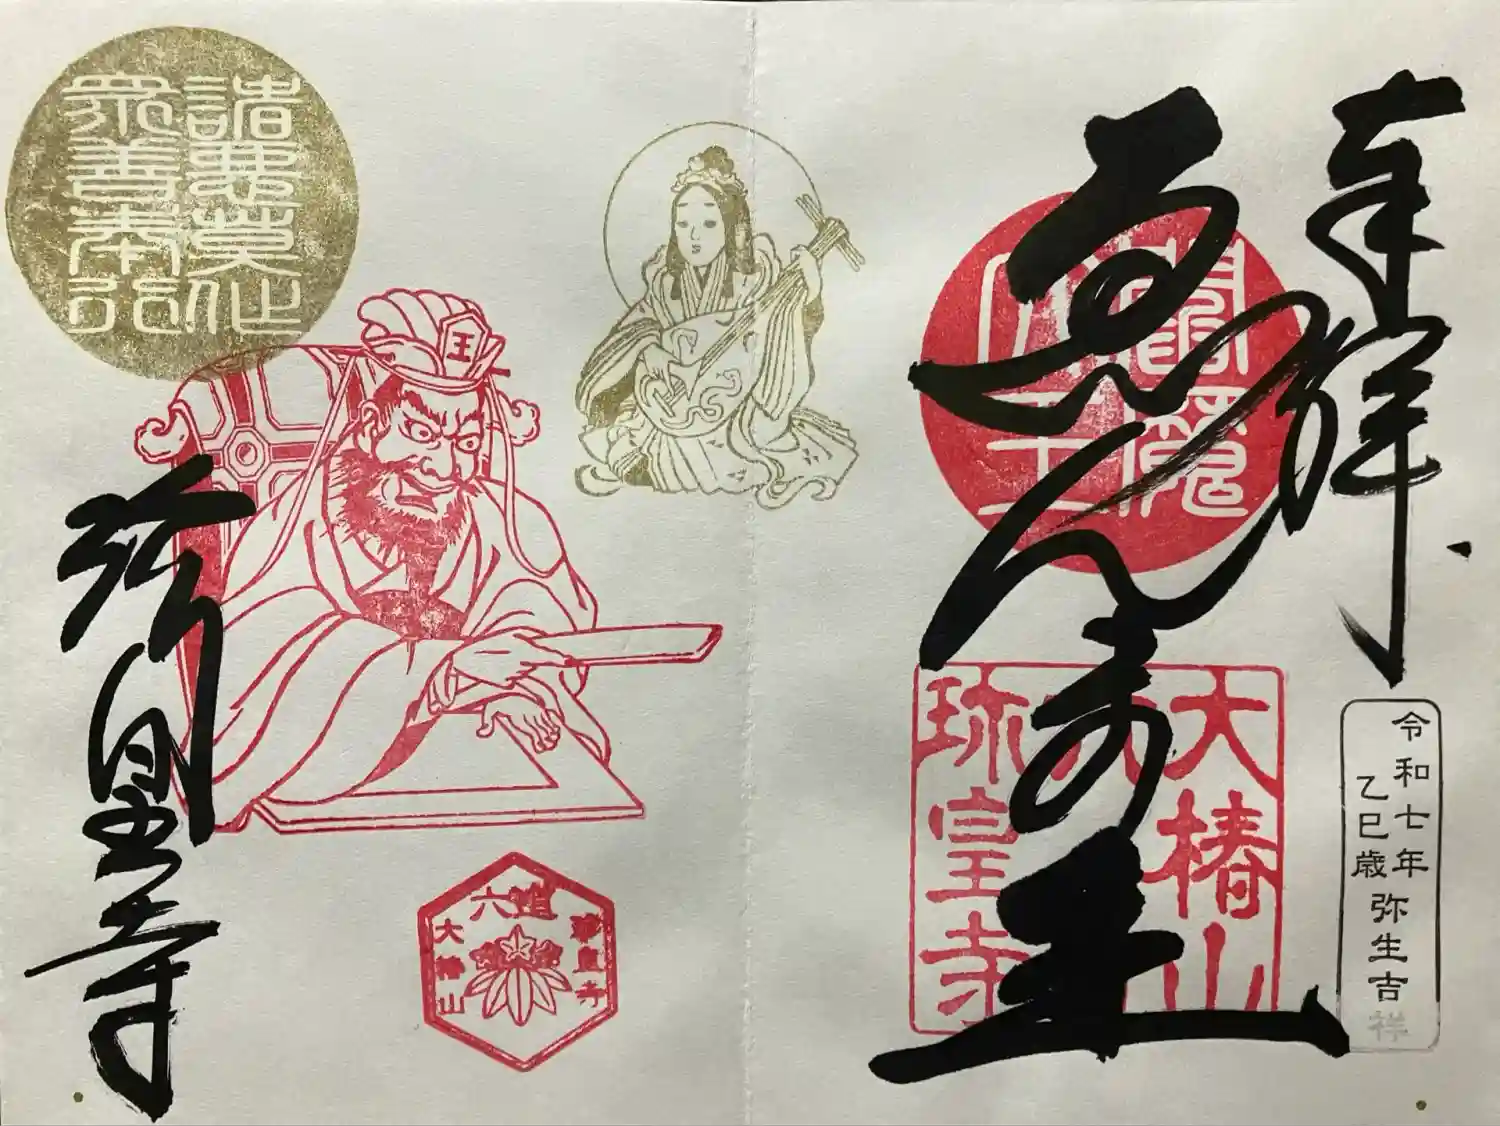 奉拝
令和七年
乙巳歳
弥生吉祥
ゑんま王
大椿山
珍皇寺
諸悪莫作
衆善奉行
王
珍皇寺
六道
珍皇寺
大椿山